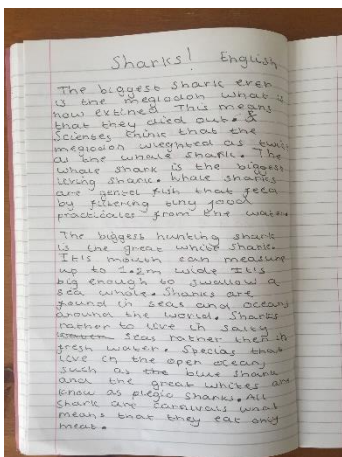 Sharks! English
The biggest shark ever
is the meglodon what is
now extined This means
that they died out.
Scientes think that the
meglodon wieghted as twic
as the whale shark. The
whale shark is the biggest
living shark. Whale sharkes
are gental fish that feed
by filtering tiny food
practicales from the water.
The biggest hunting shark
is the great white shark.
It is mouth can measure
up to 1.2m wide It is
big enough to swallow a
sea whole. Sharks are
found in seas and oceans
around the world. Sharks
rather to live in salty
seas rather then in
fresh water. Specias that
live in the open ocean,
such as the blue shark
and the great whites are
know as plegic sharks. All
shark are carnivals what
means that they eat only
meat.